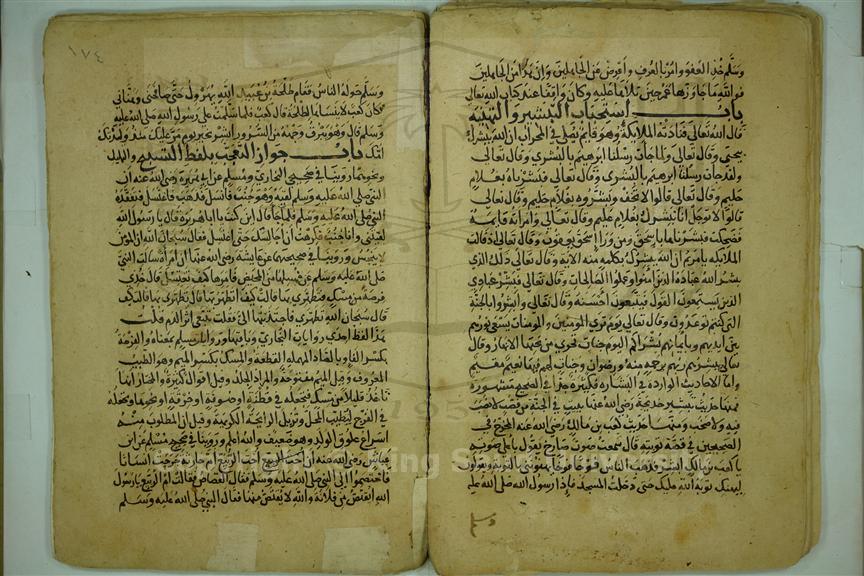 وسلم خذ العفو وامر بالعرف واعرض عن الجاهلين وان هذا من الجاهلين
فوالله ما جاوزها عمر حين تلاها عليه وكان وقافا عند كتاب الله تعالى
باب استحباب التبشير والتهنئة
قال الله تعالى فنادته الملائكة وهو قايم يصلي في المحراب ان الله يبشرك
بيحيى وقال تعالى ولما جات رسلنا ابرهيم بالبشرى وقال تعالى
ولقد جات رسلنا ابرهيم بالبشرى وقال تعالى فبشرناه بغلام
حليم وقال تعالى قالوا لا تخف وبشروه بغلام عليم وقال تعالى
قالوا لا توجل انا نبشرك بغلام عليم وقال تعالى وامراته قايمة
فضحكت فبشرناها باسحق ومن ورا اسحق يعقوب وقال تعالى اذ قالت
الملايكة يا مريم ان الله يبشرك بكلمة منه الاية وقال تعالى ذلك الذي
يبشر الله عباده الذين امنوا وعملوا الصالحات وقال تعالى فبشر عبادي
الذين يستمعون القول فيتبعون احسنه وقال تعالى وابشروا بالجنة
التي كنتم توعدون وقال تعالى يوم ترى المومنين والمومنات يسعى نورهم
بين ايديهم وبايمانهم بشراكم اليوم جنات تجري من تحتها الانهار وقال
تعالى يبشرهم ربهم برحمة منه ورضوان وجنات لهم فيها نعيم مقيم
واما الاحاديث الواردة في البشارة فكثيرة جدا في الصحيح مشهورة
فمنها حديث تبشير خديجة رضي الله عنها ببيت في الجنة من قصب لا نصب
فيه ولا صخب ومنها حديث كعب بن مالك رضي الله عنه المخرج في
الصحيحين في قصة توبته قال سمعت صوت صارخ يقول باعلى صوته
يا كعب بن مالك ابشر فذهب الناس يبشروننا وانطلقت اتامم رسول الله صلى الله عليه وسلم يتلقاني الناس فوجا فوجا يهنونني بالتوبة ويقولون
ليهنك توبة الله عليك حتى دخلت المسجد فاذا رسول الله صلى الله عليه
وسلم
١٧٤
وسلم حوله الناس فقام طلحة بن عبيد الله يهرول حتى صافحني وهناني
فكان كعب لا ينساها لطلحة قال كعب فلما سلمت على رسول الله صلى الله عليه
وسلم قال وهو يبرق وجهه من السرور ابشر بخير يوم مر عليك منذ ولدتك
امك باب جواز التعجب بلفظ التسبيح والتهليل
ونحوهما روينا في صحيحي البخاري ومسلم عن ابي هريرة رضي الله عنه ان
النبي صلى الله عليه وسلم لقيه وهو جنب فانسل فذهب فاغتسل فتفقده
النبي صلى الله عليه وسلم فلما جا قال اين كنت يا ابا هريرة قال يا رسول الله
لقيتني وانا جنب فكرهت ان اجالسك حتى اغتسل فقال سبحان الله ان المومن
لا ينجس وروينا في صحيحيهما عن عايشة رضي الله عنها ان امراة سالت النبي
صلى الله عليه وسلم عن غسلها من الحيض فامرها كيف تغتسل قال خذي
فرصة من مسك فتطهري بها قالت كيف اتطهر بها قال تطهري بها قالت كيف
قال سبحان الله تطهري فاجتذبتها الي فقلت تتبعي اثر الدم قلت
هذا لفظ احدى روايات البخاري وباقيها وروايات مسلم بمعناه والفرصة
بكسر الفا وبالصاد المهملة القطعة والمسك بكسر الميم وهو الطيب
المعروف وقيل الميم مفتوحة والمراد الجلد وقيل اقوال كثيرة والمختار انها
تاخذ قليلا من مسك فتجعله في قطنة او صوفة او خرقة او نحوها وتجعله
في الفرج لتطيب المحل وتزيل الرايحة الكريهة وقيل ان المطلوب منه
اسراع علوق الولد وهو ضعيف والله اعلم وروينا في صحيح مسلم عن انس
رضي الله عنه ان اخت الربيع ام حارثة جرحت انسانا
فاختصموا الى النبي صلى الله عليه وسلم فقال القصاص القصاص فقالت ام الربيع يا رسول
الله ايقتص من فلانة والله لا يقتص منها فقال النبي صلى الله عليه وسلم